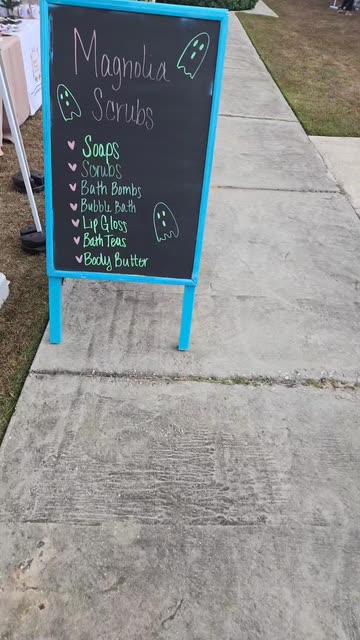 Magnolia
Scrubs
Soaps
Scrubs
Bath Bombs
Bubble Bath
Lip Gloss
Bath Teas
Body Butter